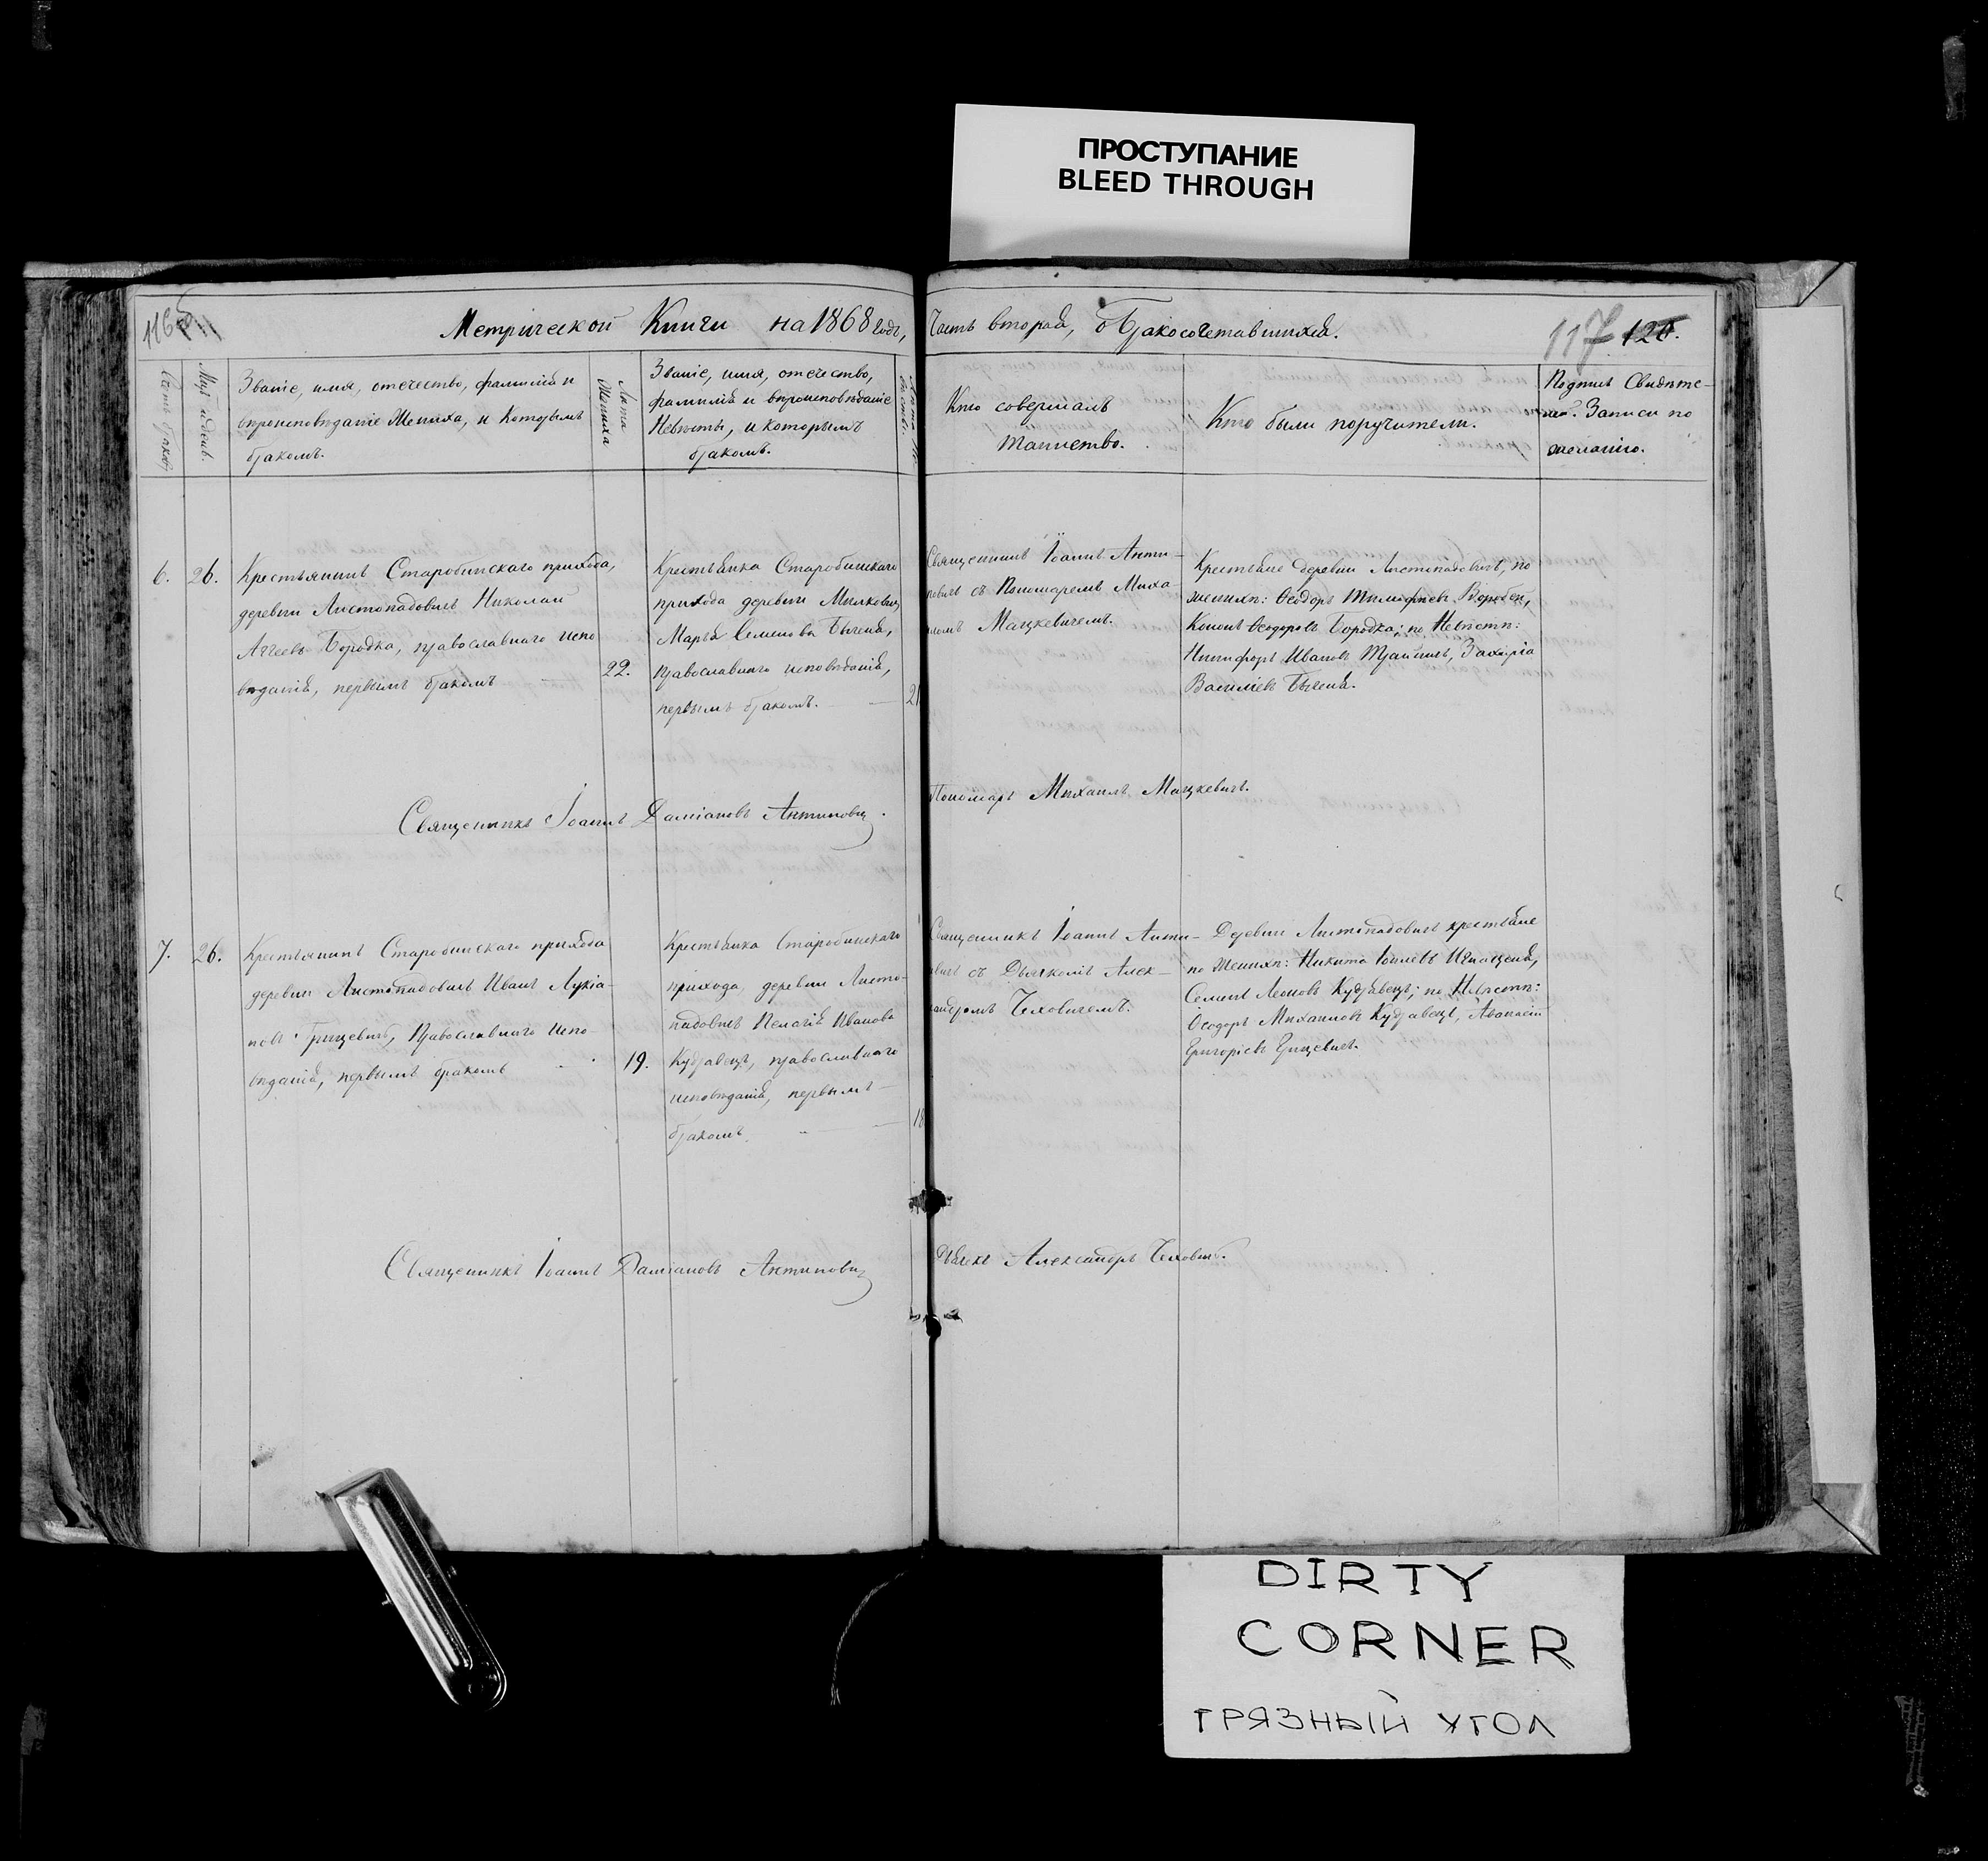 ПРОСТУПАНИЕ
BLEED THROUGH
116
Метрической Книги на 1868 годъ,
Часть вторая, о бракосочетавшихся.
117 120.
Счетъ браков.
Мц. и день.
Званіе, имя, отечество, фамилія и
вѣроисповѣданіе Жениха, и которымъ
бракомъ.
Лѣта Жениха
Званіе, имя, отечество,
фамилія и вѣроисповѣданіе
Невѣсты, и которымъ
бракомъ.
Кто совершалъ
таинство.
Кто были поручители.
Подпись Свидѣте-
лей Записи по
желанію.
6. 26.
Крестьянинъ Старобинскаго прихода,
деревни Листопадовичъ Николай
Аггеевъ Бородка, православнаго испо
вѣданія, первымъ бракомъ
22.
Крестьянка Старобинскаго
прихода деревни Милковичъ
Марья Семенова Быченя,
православнаго исповѣданія,
первымъ бракомъ.
21
Священникъ Іоаннъ Анти-
повичъ съ Пономаремъ Миха-
иломъ Мацкевичемъ.
Крестьяне деревни Листопадовичъ, по
женихѣ: Ѳеодоръ Воробей,
Кононъ Ѳеодоровъ Бородка; по Невѣстѣ:
Никифоръ Ивановъ Захарія
Василіевъ Быченя.
Священникъ Іоаннъ Даміановъ Антиповичъ.
Пономарь Михаилъ Мацкевичъ.
7. 26.
Крестьянинъ Старобинскаго прихода
деревни Листопадовичъ Иванъ Лукіа-
новъ Грицевичъ, Православнаго испо-
вѣданія, первымъ бракомъ
19.
Крестьянка Старобинскаго
прихода, деревни Листо-
падовичъ Пелагія Иванова
Кудравецъ, православнаго
исповѣданія, первымъ
бракомъ.
18
Священникъ Іоаннъ Анти-
овичъ съ Дьячкомъ Алек-
сандромъ Чеховичемъ.
Деревни Листопадовичъ крестьяне
по Женихѣ: Никита Игнаценя,
Семенъ Леоновъ Кудравецъ; по Невѣстѣ:
Ѳеодоръ Михаиловъ Кудравецъ, Аѳанасій
Григоріевъ Грицевичъ.
Священникъ Іоаннъ Даміановъ Антиповичъ
Дьячекъ Александръ Чеховичъ.
DIRTY
CORNER
ГРЯЗНЫЙ УГОЛ